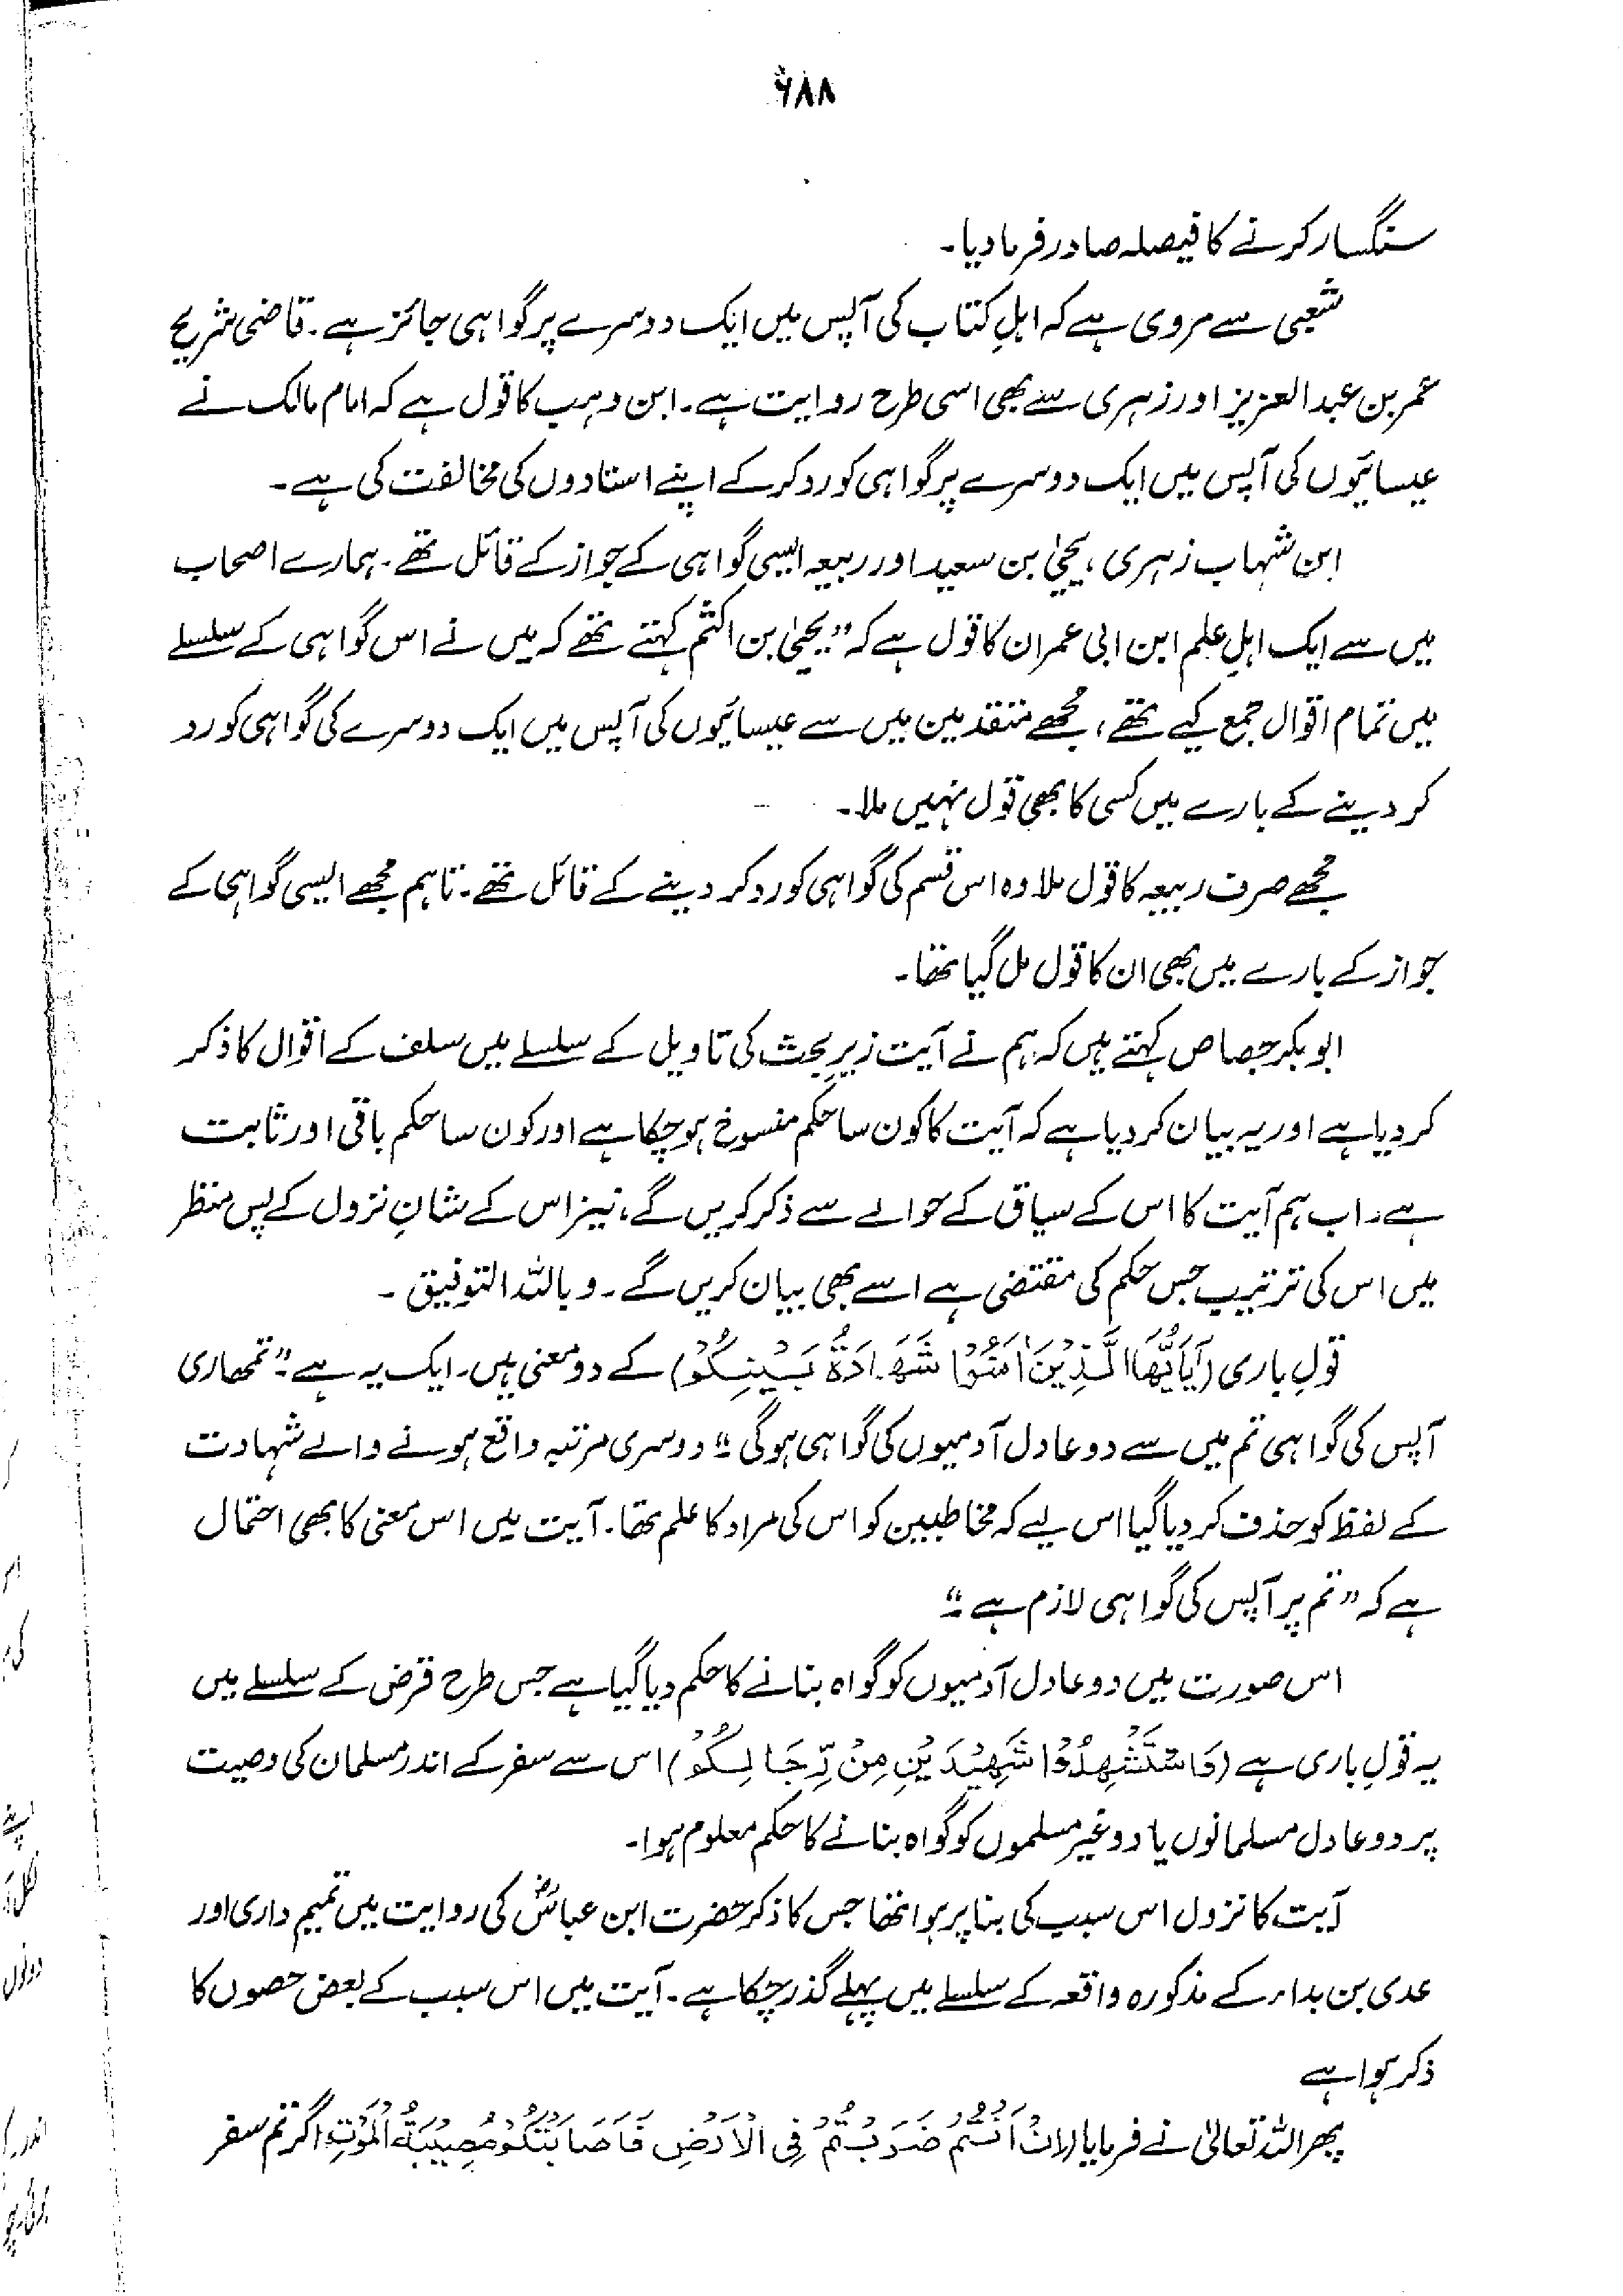 ۶۸۸
سنگسار کرنے کا فیصلہ صادر فرما دیا۔
شعبی سے مروی ہے کہ اہلِ کتاب کی آپس میں ایک دوسرے پر گواہی جائز ہے۔ قاضی شریح
عمر بن عبدالعزیز اور زہری سے بھی اسی طرح روایت ہے۔ ابن وہب کا قول ہے کہ امام مالک نے
عیسائیوں کی آپس میں ایک دوسرے پر گواہی کو رد کر کے اپنے استادوں کی مخالفت کی ہے۔
ابن شہاب زہری، یحییٰ بن سعید اور ربیعہ ایسی گواہی کے جواز کے قائل تھے۔ ہمارے اصحاب
میں سے ایک اہلِ علم ابن ابی عمران کا قول ہے کہ "یحییٰ بن اکثم کہتے تھے کہ میں نے اس گواہی کے سلسلے
میں تمام اقوال جمع کیے تھے، مجھے متقدمین میں سے عیسائیوں کی آپس میں ایک دوسرے کی گواہی کو رد
کر دینے کے بارے میں کسی کا بھی قول نہیں ملا۔
مجھے صرف ربیعہ کا قول ملا وہ اس قسم کی گواہی کو رد کر دینے کے قائل تھے۔ تاہم مجھے ایسی گواہی کے
جواز کے بارے میں بھی ان کا قول مل گیا تھا۔
ابوبکر جصاص کہتے ہیں کہ ہم نے آیت زیرِ بحث کی تاویل کے سلسلے میں سلف کے اقوال کا ذکر
کر دیا ہے اور یہ بیان کر دیا ہے کہ آیت کا کون سا حکم منسوخ ہو چکا ہے اور کون سا حکم باقی اور ثابت
ہے۔ اب ہم آیت کا اس کے سیاق کے حوالے سے ذکر کریں گے، نیز اس کے شانِ نزول کے پس منظر
میں اس کی ترتیب جس حکم کی مقتضی ہے اسے بھی بیان کریں گے۔ وباللہ التوفیق۔
قولِ باری (یٰۤاَیُّهَا الَّذِیْنَ اٰمَنُوْا شَهَادَةُ بَیْنِكُمْ) کے دو معنی ہیں۔ ایک یہ ہے: "تمھاری
آپس کی گواہی تم میں سے دو عادل آدمیوں کی گواہی ہوگی" دوسری مرتبہ واقع ہونے والے شہادت
کے لفظ کو حذف کر دیا گیا اس لیے کہ مخاطبین کو اس کی مراد کا علم تھا۔ آیت میں اس معنی کا بھی احتمال
ہے کہ "تم پر آپس کی گواہی لازم ہے۔"
اس صورت میں دو عادل آدمیوں کو گواہ بنانے کا حکم دیا گیا ہے جس طرح قرض کے سلسلے میں
یہ قولِ باری ہے (فَاسْتَشْهِدُوْا شَهِیْدَیْنِ مِنْ رِّجَالِكُمْ) اس سے سفر کے اندر مسلمان کی وصیت
پر دو عادل مسلمانوں یا دو غیر مسلموں کو گواہ بنانے کا حکم معلوم ہوا۔
آیت کا نزول اس سبب کی بنا پر ہوا تھا جس کا ذکر حضرت ابن عباسؓ کی روایت میں تمیم داری اور
عدی بن بداء کے مذکورہ واقعہ کے سلسلے میں پہلے گذر چکا ہے۔ آیت میں اس سبب کے بعض حصوں کا
ذکر ہوا ہے
پھر اللہ تعالیٰ نے فرمایا (اِنْ اَنْتُمْ ضَرَبْتُمْ فِی الْاَرْضِ فَاَصَابَتْكُمْ مُّصِیْبَةُ الْمَوْتِ اگر تم سفر
دونوں